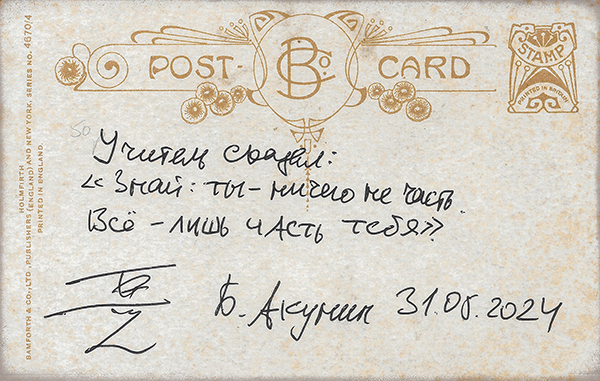 POST- B Co CARD
STAMP
PRINTED IN BRITAIN
BAMFORTH & CO., LTD., PUBLISHERS (ENGLAND) AND NEW YORK. SERIES NO. 4670/4
HOLMFIRTH
PRINTED IN ENGLAND.
Учитель сказал:
«Знай: ты - ничего не часть.
Всё - лишь часть тебя»
Б. Акунин 31.05.2024